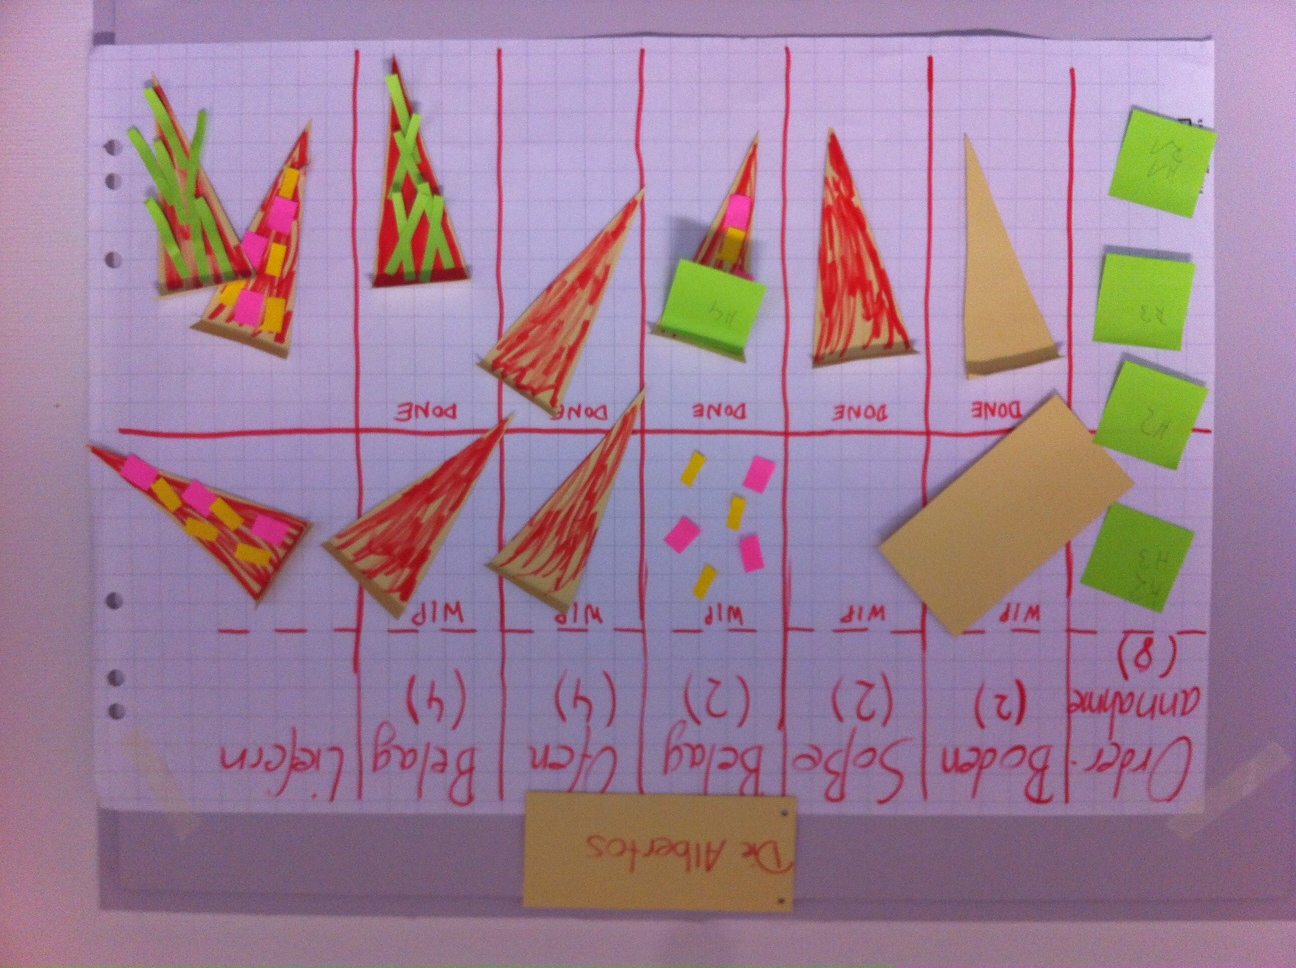 Die Albertos
Order-
annahme
(8)
Boden
(2)
Soße
(2)
Belag
(2)
Ofen
(4)
Belag
(4)
Liefern
WIP
WIP
WIP
WIP
WIP
H3
H2
R3
H1
R1
DONE
DONE
DONE
DONE
DONE
H4